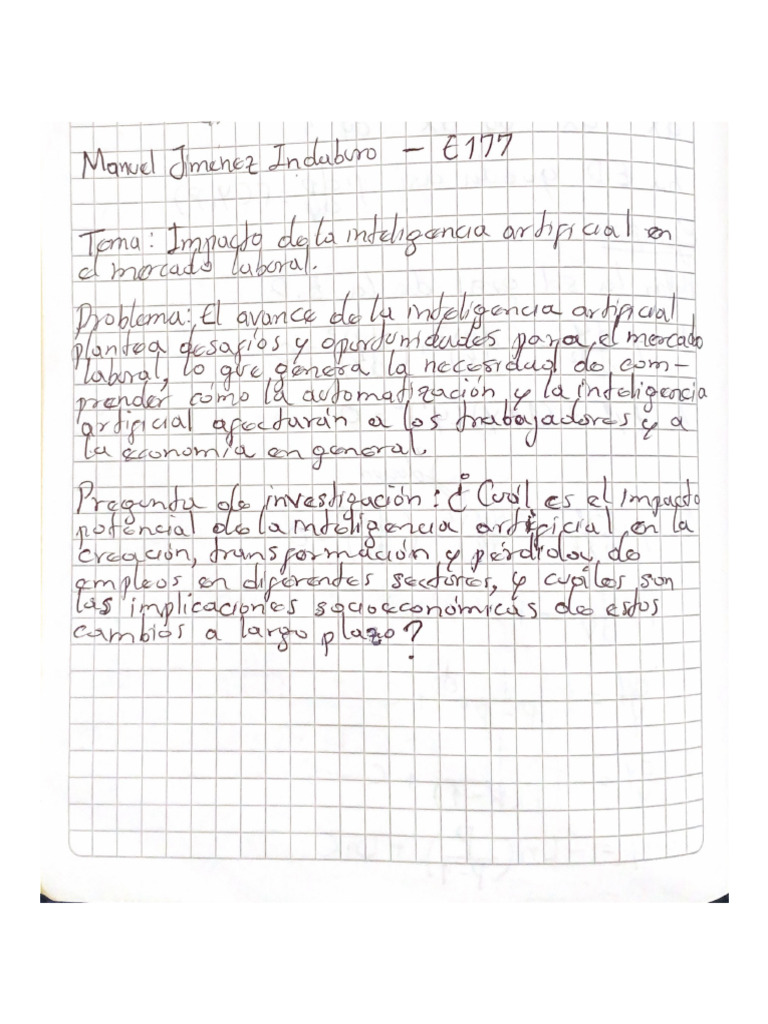 Manuel Jimenez Indaburo - E177
Tema: Impacto de la inteligencia artificial en
el mercado laboral.
Problema: El avance de la inteligencia artificial
plantea desafíos y oportunidades para el mercado
laboral, lo que genera la necesidad de com-
prender cómo la automatización y la inteligencia
artificial afectarán a los trabajadores y a
la economía en general.
Pregunta de investigación: ¿Cuál es el impacto
potencial de la inteligencia artificial en la
creación, transformación y pérdida de
empleos en diferentes sectores, y cuáles son
las implicaciones socioeconómicas de estos
cambios a largo plazo?